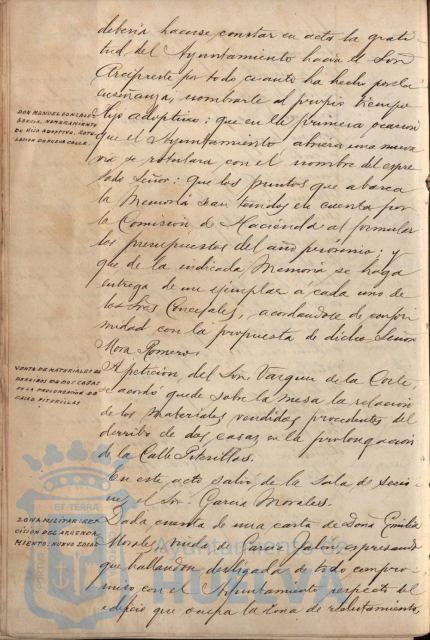 debería hacerse constar en acta la grati
tud del Ayuntamiento hacia el Señor
Arcipreste por todo cuanto ha hecho por la
enseñanza, nombrarle al propio tiempo
hijo adoptivo: que en la primera ocasión
que el Ayuntamiento abriera una nueva
via se rotulara con el nombre del expre
sado Señor: que los puntos que abarca
la Memoria sean tenidos en cuenta por
la Comisión de Hacienda al formular
los presupuestos del año próximo; y
que de la indicada Memoria se haga
entrega de un ejemplar á cada uno de
los Sres Concejales, acordándose de confor
midad con la propuesta de dicho Señor
Mora Romero.
A petición del Sor. Vazquez de la Corte,
se acordó quede sobre la mesa la relación
de los materiales vendidos procedentes del
derribo de dos casas en la prolongación
de la Calle Piterillas.
En este acto salió de la Sala de Sesio
nes el Sor. Garcia Morales.
Dada cuenta de una carta de Doña Emilia
Morales, viuda de Garcia Jalon, expresando
que hallandose desligada de todo compro
miso con el Ayuntamiento respecto del
edificio que ocupa la Zona de reclutamiento,
DON MANUEL GONZALEZ
GARCIA, NOMBRAMIENTO
DE HIJO ADOPTIVO, ROTU
LACION DE NUEVA CALLE.
VENTA DE MATERIALES DE
DERRIBO DE DOS CASAS
EN LA PROLONGACION DE
CALLE PITERILLAS
ZONA MILITAR: RES
CISION DEL ARRENDA
MIENTO: NUEVO LOCAL
ET TERRA
Ayuntamiento de
HUELVA